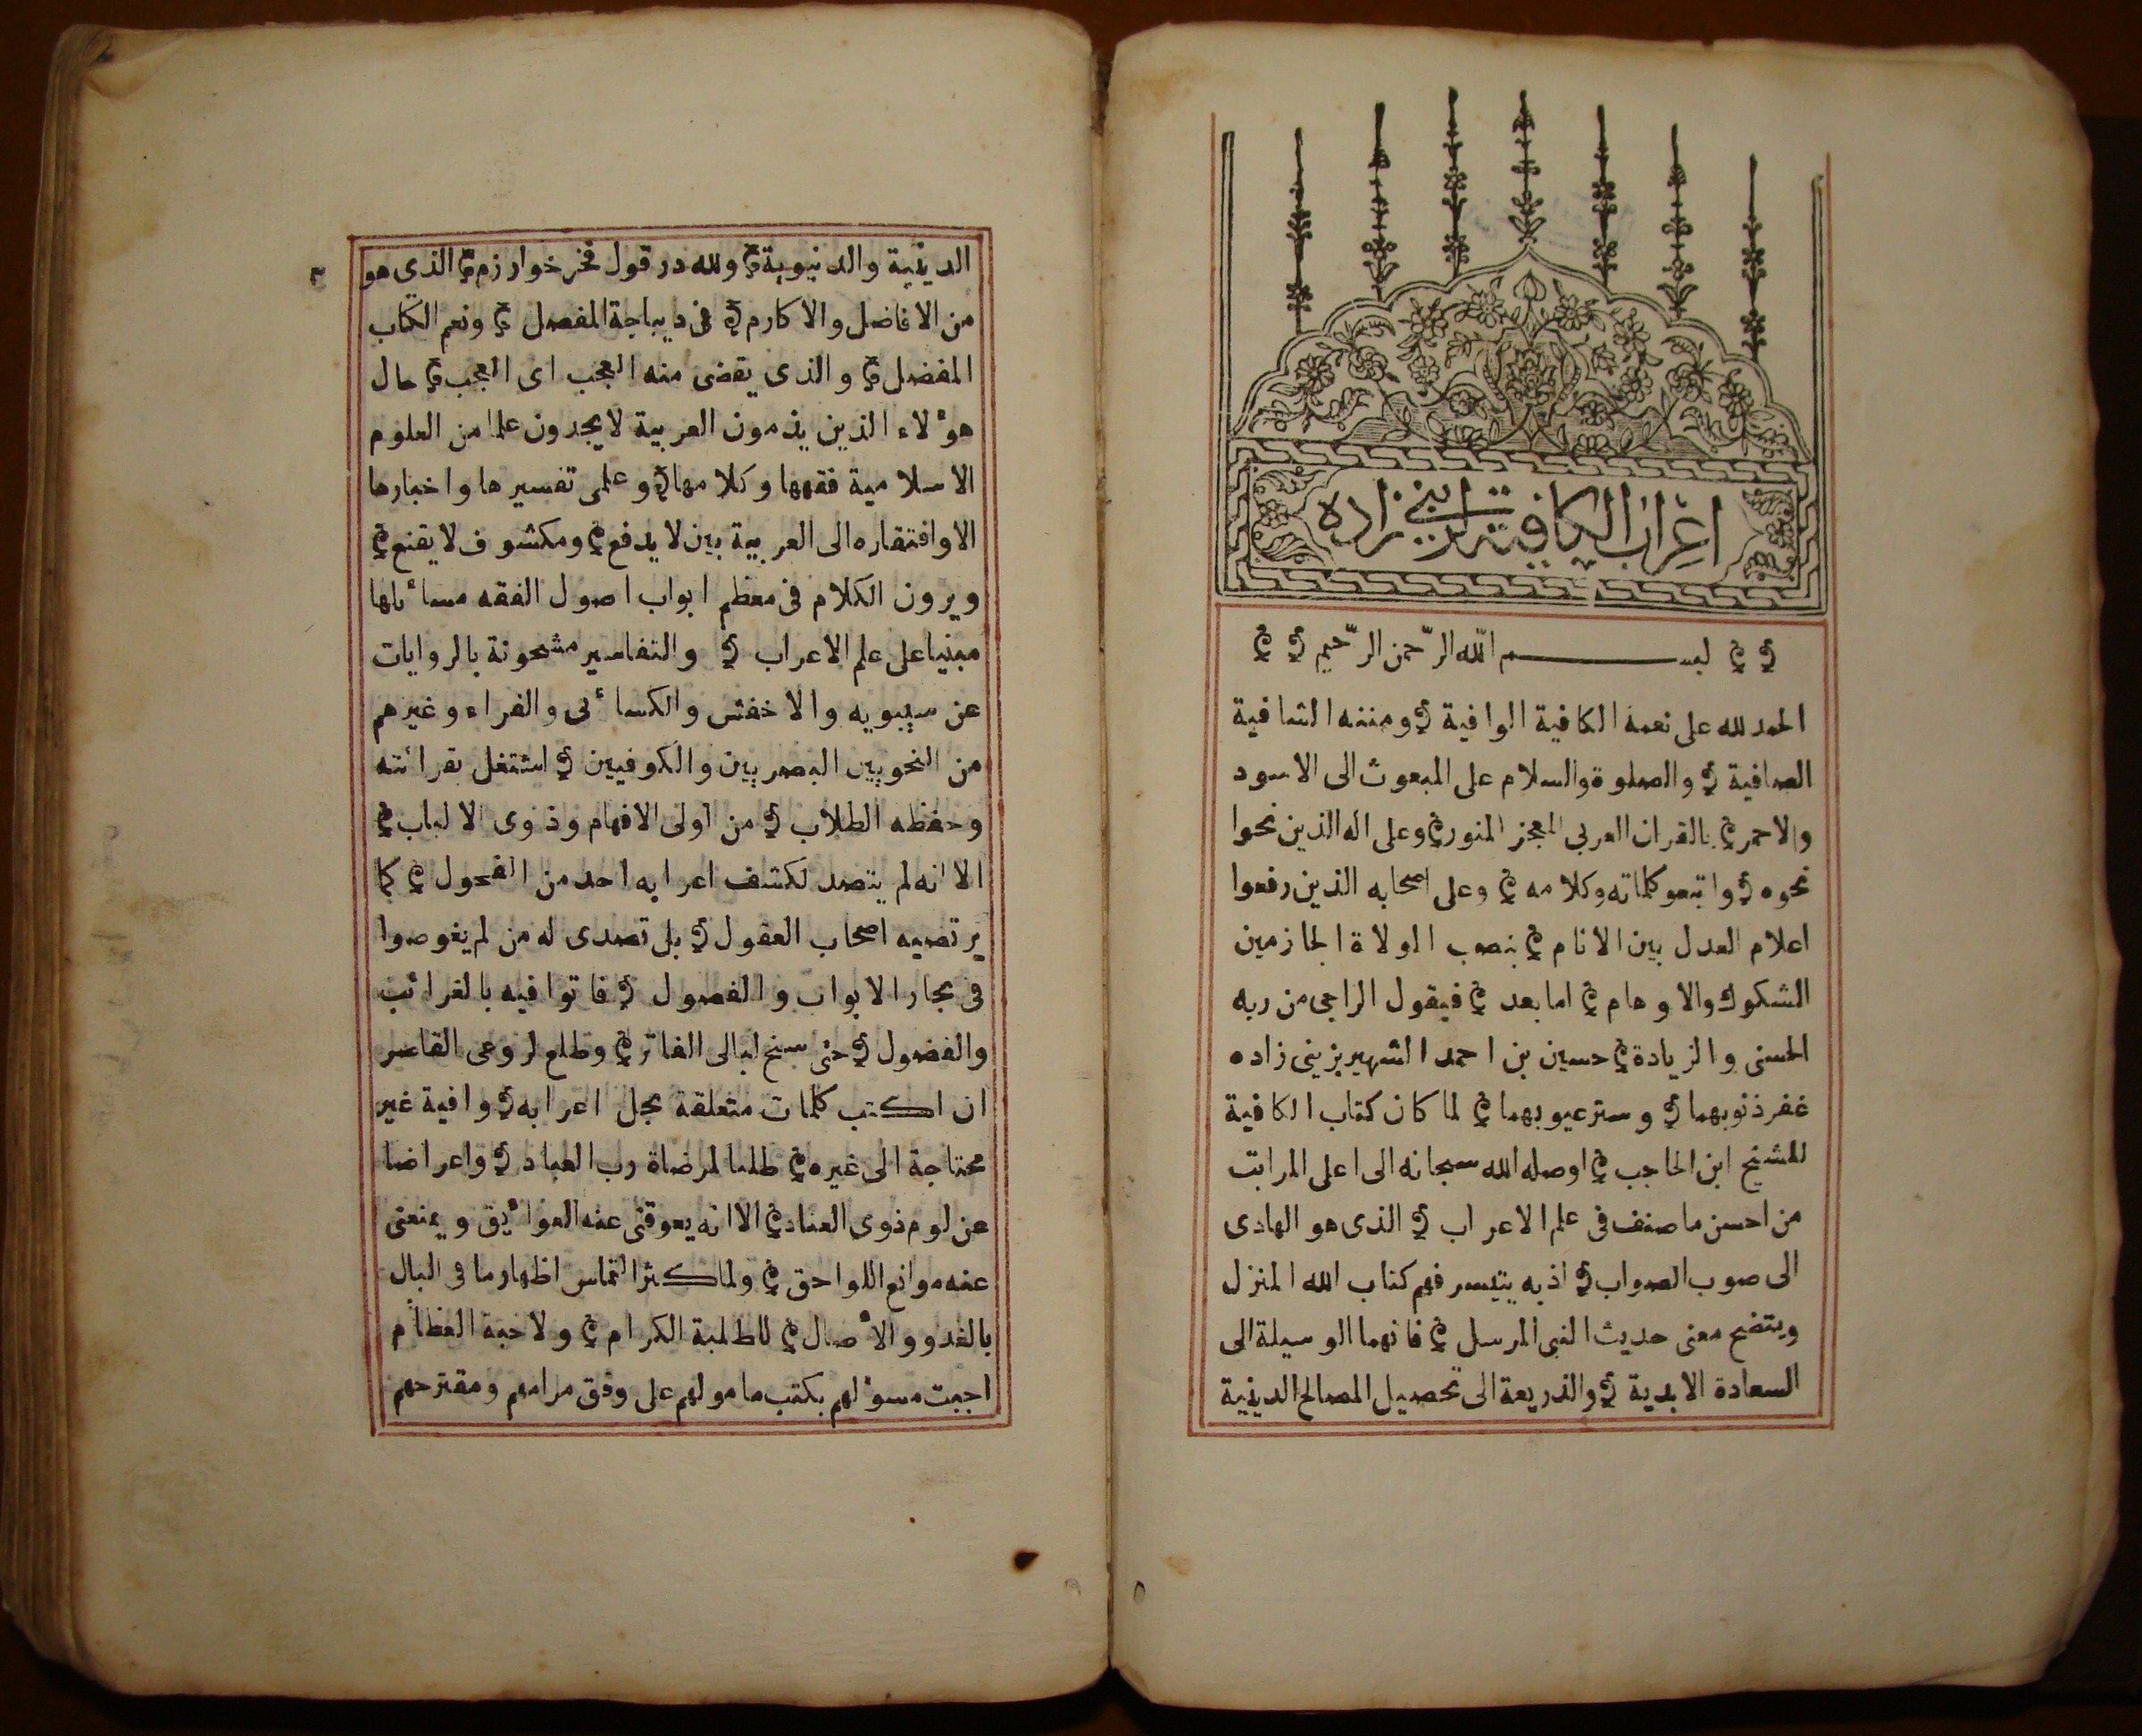 اعراب الكافية لزينى زاده
بسم الله الرّحمن الرّحيم
الحمد لله على نعمه الكافية الوافية ومننه الشافية
الصافية والصلوة والسلام على المبعوث الى الاسود
والاحمر بالقران العربى المعجز المنور وعلى اله الذين نحوا
نحوه واتبعو كلماته وكلامه وعلى اصحابه الذين رفعوا
اعلام العدل بين الانام بنصب الولاة الجازمين
الشكوك والاوهام اما بعد فيقول الراجى من ربه
الحسنى والزيادة حسين بن احمد الشهير بزينى زاده
غفر ذنوبهما وستر عيوبهما لما كان كتاب الكافية
للشيخ ابن الحاجب اوصله الله سبحانه الى اعلى المراتب
من احسن ما صنف فى علم الاعراب الذى هو الهادى
الى صوب الصواب اذ به يتيسر فهم كتاب الله المنزل
ويتضح معنى حديث النبى المرسل فانهما الوسيلة الى
السعادة الابدية والذريعة الى تحصيل المصالح الدينية
٣
الدينية والدنيوية ولله در قول فخر خوارزم الذى هو
من الافاضل والاكارم فى ديباجة المفصل ونعم الكتاب
المفضل والذى يقضى منه العجب اى العجب حال
هؤلاء الذين يذمون العربية لا يجدون علما من العلوم
الاسلامية فقهها وكلامها وعلمى تفسيرها واخبارها
الا وافتقاره الى العربية بين لا يدفع ومكشوف لا يقنع
ويرون الكلام فى معظم ابواب اصول الفقه مسائلها
مبنيا على علم الاعراب والتفاسير مشحونة بالروايات
عن سيبويه والاخفش والكسائى والفراء وغيرهم
من النحويين البصريين والكوفيين اشتغل بقرائته
وحفظه الطلاب من اولى الافهام وذوى الالباب
الا انه لم يتصد لكشف اعرابه احد من الفحول كما
يرتضيه اصحاب العقول بل تصدى له من لم يغوصوا
فى بحار الابواب والفصول فاتوا فيه بالغرائب
والفضول حتى سنح لبالى الفاتر وطلع لروعى القاصر
ان اكتب كلمات متعلقة بحل اعرابه وافية غير
محتاجة الى غيره طلبا لمرضاة رب العباد واعراضا
عن لوم ذوى العناد الا انه يعوقنى عنه العوائق ويمنعنى
عنه موانع اللواحق ولما كثر التماس اظهار ما فى البال
بالغدو والأصال للطلبة الكرام ولاحبة العظام
اجبت مسؤلهم بكتب مامولهم على وفق مرامهم ومقترحهم